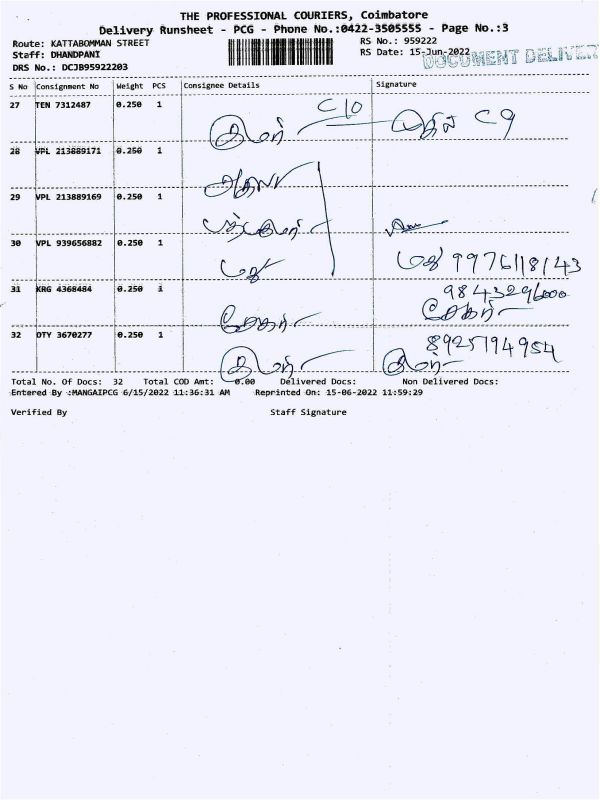 THE PROFESSIONAL COURIERS, Coimbatore
Delivery Runsheet - PCG - Phone No.:0422-3505555 - Page No.:3
Route: KATTABOMMAN STREET RS No.: 959222
Staff: DHANDPANI RS Date: 15-Jun-2022 DOCUMENT DELIVER
DRS No.: DCJB95922203
S No Consignment No Weight PCS Consignee Details Signature
27 TEN 7312487 0.250 1 C10 C9
28 VPL 213889171 0.250 1
29 VPL 213889169 0.250 1
30 VPL 939656882 0.250 1 9976118143
31 KRG 4368484 0.250 1 9843296000
32 OTY 3670277 0.250 1 8925194954
Total No. Of Docs: 32 Total COD Amt: 0.00 Delivered Docs: Non Delivered Docs:
Entered By :MANGAIPCG 6/15/2022 11:36:31 AM Reprinted On: 15-06-2022 11:59:29
Verified By Staff Signature